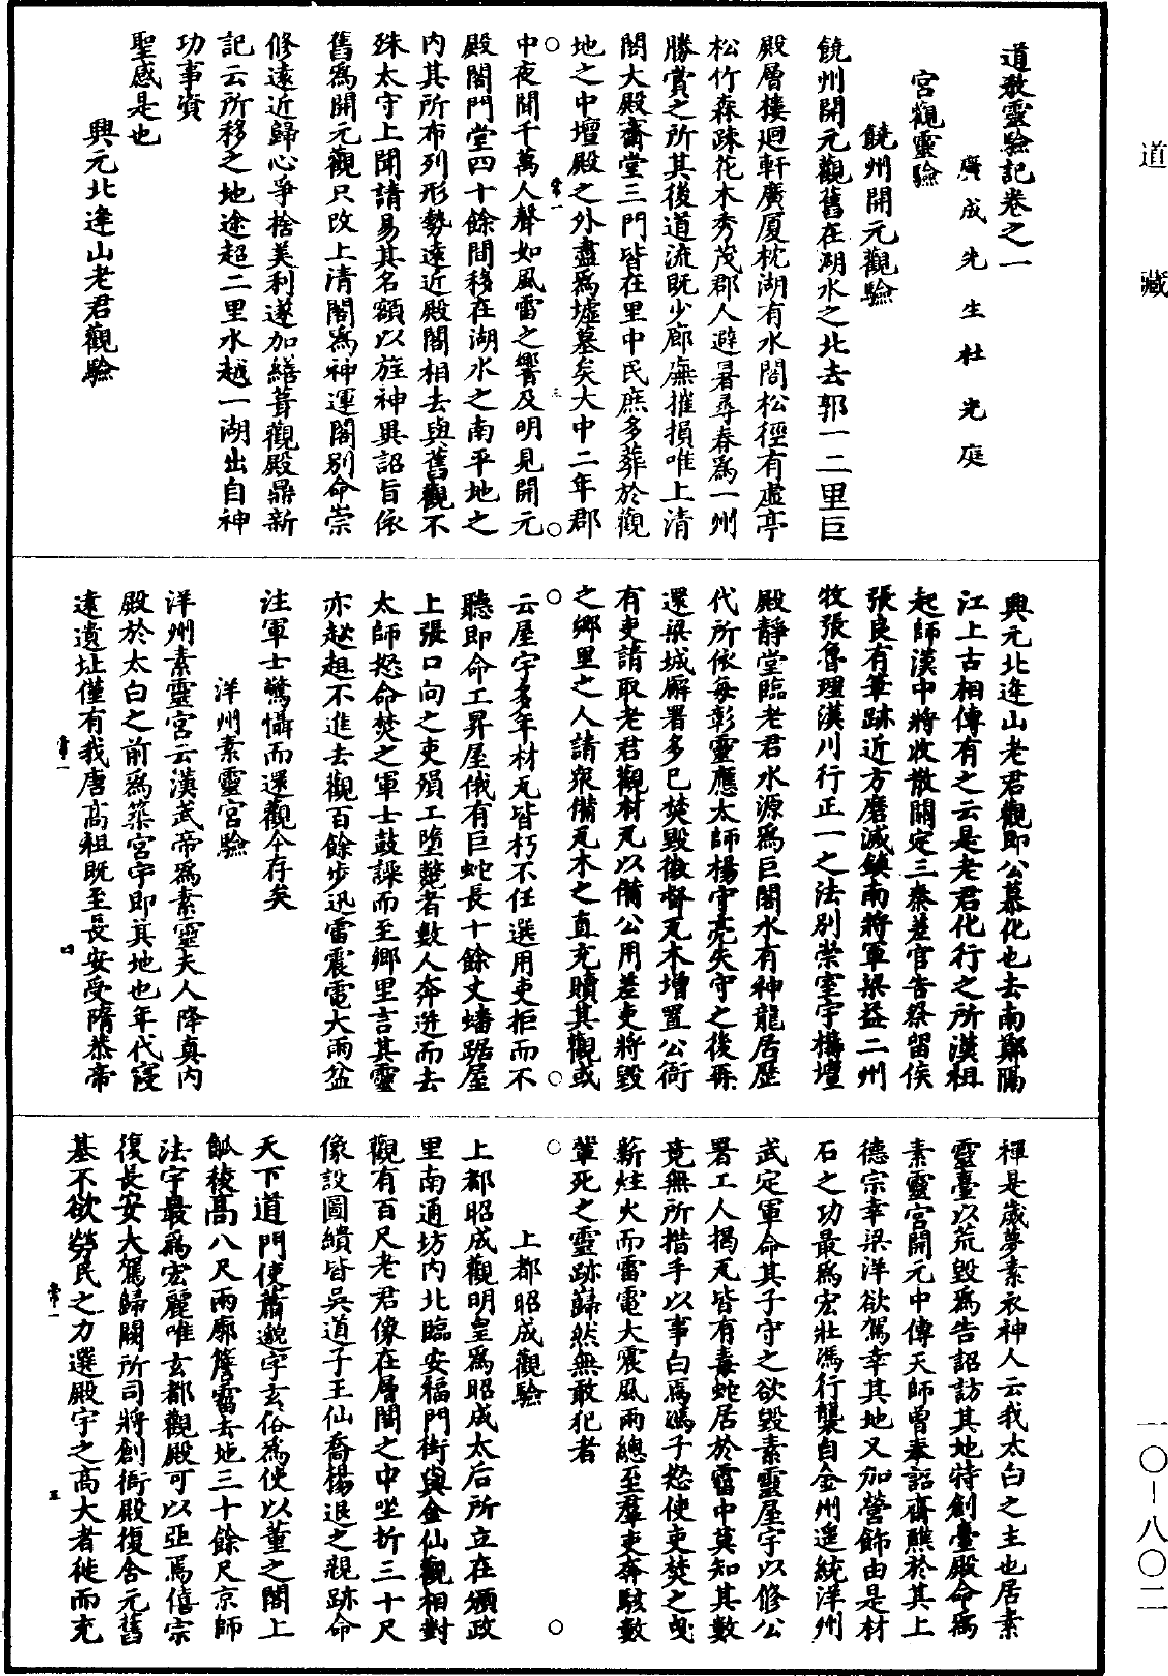 道藏
道教靈驗記卷之一
廣成先生杜光庭
宮觀靈驗
饒州開元觀驗
饒州開元觀舊在湖水之北去郭一二里巨
殿層樓迴軒廣厦枕湖有水閣松徑有虛亭
松竹森疎花木秀茂郡人避暑尋春為一州
勝賞之所其後道流既少廊廡摧損唯上清
閣大殿齋堂三門皆在里中民庶多葬於觀
地之中壇殿之外盡為墟墓矣大中二年郡
常一
三
中夜聞千萬人聲如風雷之響及明見開元
殿閣門堂四十餘間移在湖水之南平地之
內其所布列形勢遠近殿閣相去與舊觀不
殊太守上聞請易其名額以旌神異詔旨依
舊為開元觀只改上清閣為神運閣別命崇
修遠近歸心爭捨美利遂加繕葺觀殿鼎新
記云所移之地途超二里水越一湖出自神
功事資
聖感是也
興元北逄山老君觀驗
興元北逄山老君觀即公慕化也去南鄭隔
江上古相傳有之云是老君化行之所漢祖
起師漢中將收散關定三秦差官告祭留侯
張良有筆跡近方磨滅鎮南將軍梁益二州
牧張魯理漢川行正一之法別崇室宇構壇
殿靜堂臨老君水源為巨閣水有神龍居歷
代所依每彰靈應太師楊守亮失守之後再
還梁城廨署多已焚毀徵督瓦木增置公衙
有吏請取老君觀材瓦以備公用差吏將毀
之鄉里之人請衆備瓦木之直充贖其觀或
云屋宇多年材瓦皆朽不任選用吏拒而不
聽即命工昇屋俄有巨蛇長十餘丈蟠踞屋
上張口向之吏殞工墮斃者數人奔迸而去
太師怒命焚之軍士鼓譟而至鄉里言其靈
亦趑趄不進去觀百餘步迅雷震電大雨盆
注軍士驚懾而還觀今存矣
洋州素靈宮驗
洋州素靈宮云漢武帝為素靈夫人降真內
殿於太白之前為築宮宇即其地也年代寖
遠遺址僅有我唐高祖既至長安受隋恭帝
常一
四
禪是歲夢素衣神人云我太白之主也居素
靈臺以荒毀為告詔訪其地特創臺殿命為
素靈宮開元中傳天師曾奉詔齋醮於其上
德宗幸梁洋欲駕幸其地又加營飾由是材
石之功最為宏壯馮行襲自金州遙統洋州
武定軍命其子守之欲毀素靈屋宇以修公
署工人揭瓦皆有毒蛇居於霤中莫知其數
竟無所措手以事白焉馮子怒使吏焚之曳
薪炷火而雷電大震風雨總至羣吏奔駭數
輩死之靈跡巋然無敢犯者
上都昭成觀驗
上都昭成觀明皇為昭成太后所立在頒政
里南通坊內北臨安福門街與金仙觀相對
觀有百尺老君像在層閣之中坐折三十尺
像設圖繢皆吳道子王仙喬楊退之親跡命
天下道門使蕭邈字玄俗為使以董之閣上
觚稜高八尺兩廓簷霤去地三十餘尺京師
法宇最為宏麗唯玄都觀殿可以亞焉僖宗
復長安大駕歸闕所司將創衙殿復含元舊
基不欲勞民之力選殿宇之高大者徙而充
常一
五
一〇-八〇二